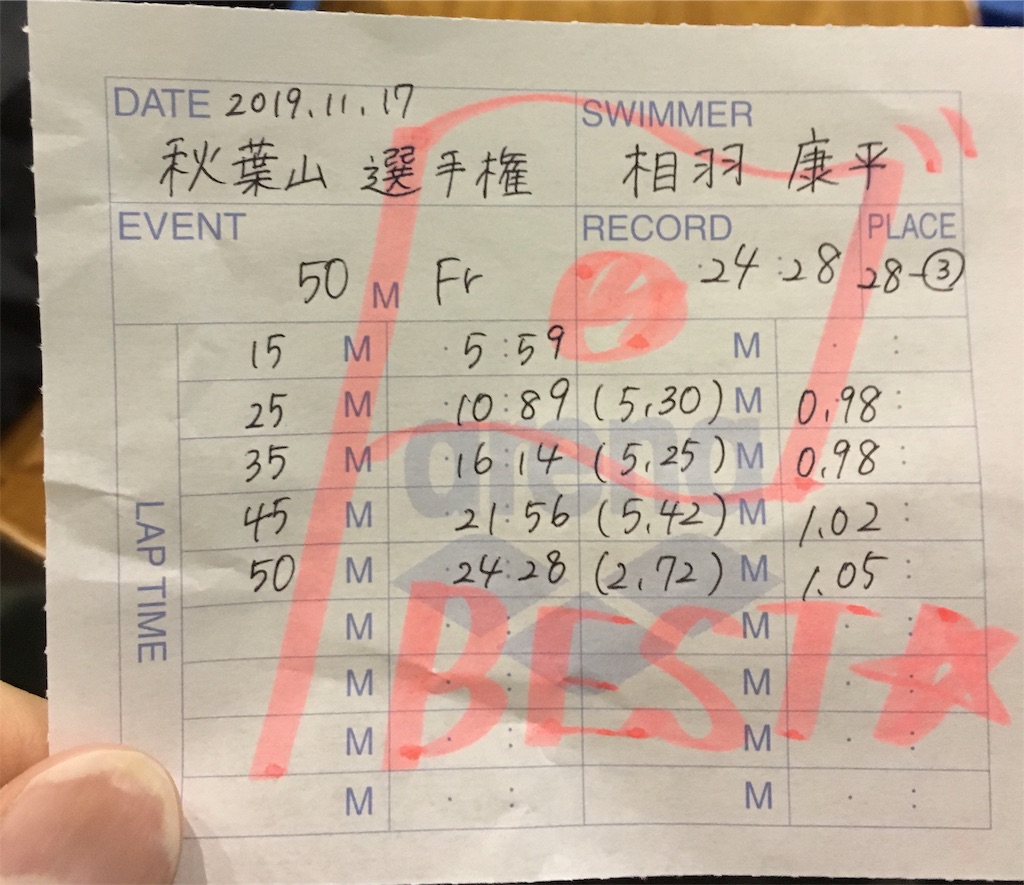 DATE 2019.11.17 SWIMMER
秋葉山 選手権 相羽 康平
EVENT RECORD PLACE
50 M Fr 24:28 28-③
LAP TIME
15 M 5:59 M
25 M 10:89 (5.30) M 0.98
35 M 16:14 (5.25) M 0.98
45 M 21:56 (5.42) M 1.02
50 M 24:28 (2.72) M 1.05
M M
M M
M M
M M
arena
BEST☆